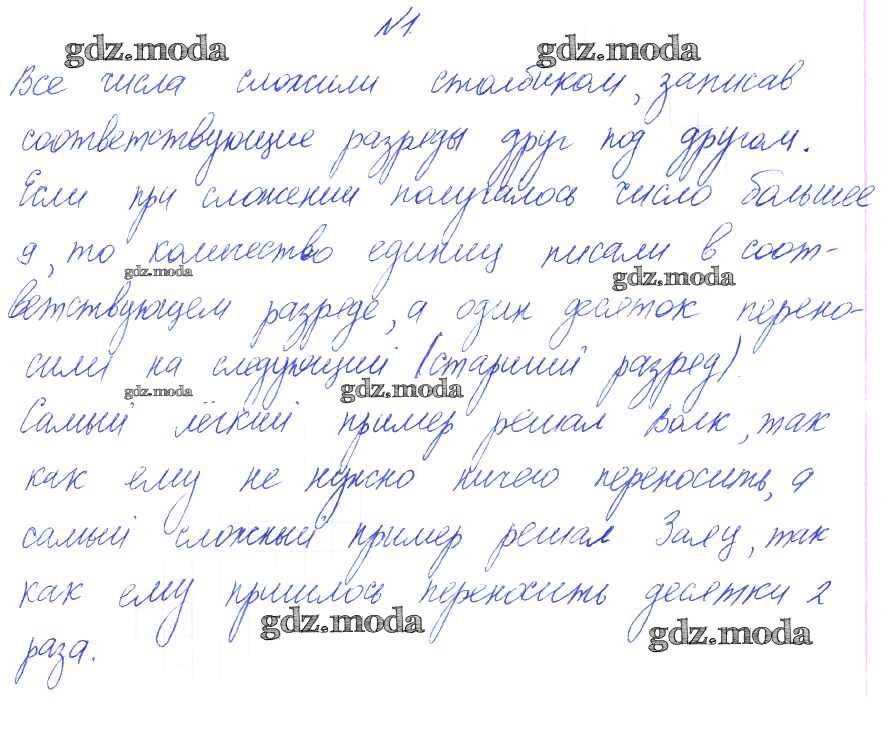 №1.
gdz.moda gdz.moda
Все числа сложили столбиком, записав
соответствующие разреды друг под другом.
Если при сложении получалось число большее
9, то количество единиц писали в соот-
gdz.moda gdz.moda
ветствующем разреде, а один десяток перено-
сили на следующий (старший разред).
gdz.moda gdz.moda
Самый лёгкий пример решал Волк, так
как ему не нужно ничего переносить, а
самый сложный пример решал Заяц, так
как ему пришлось переносить десятки 2
gdz.moda gdz.moda
раза.